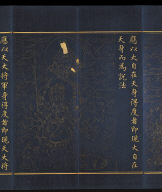 應以大自在天身得度者即現大自在
天身而為說法
應以天大將軍身得度者即現天大將